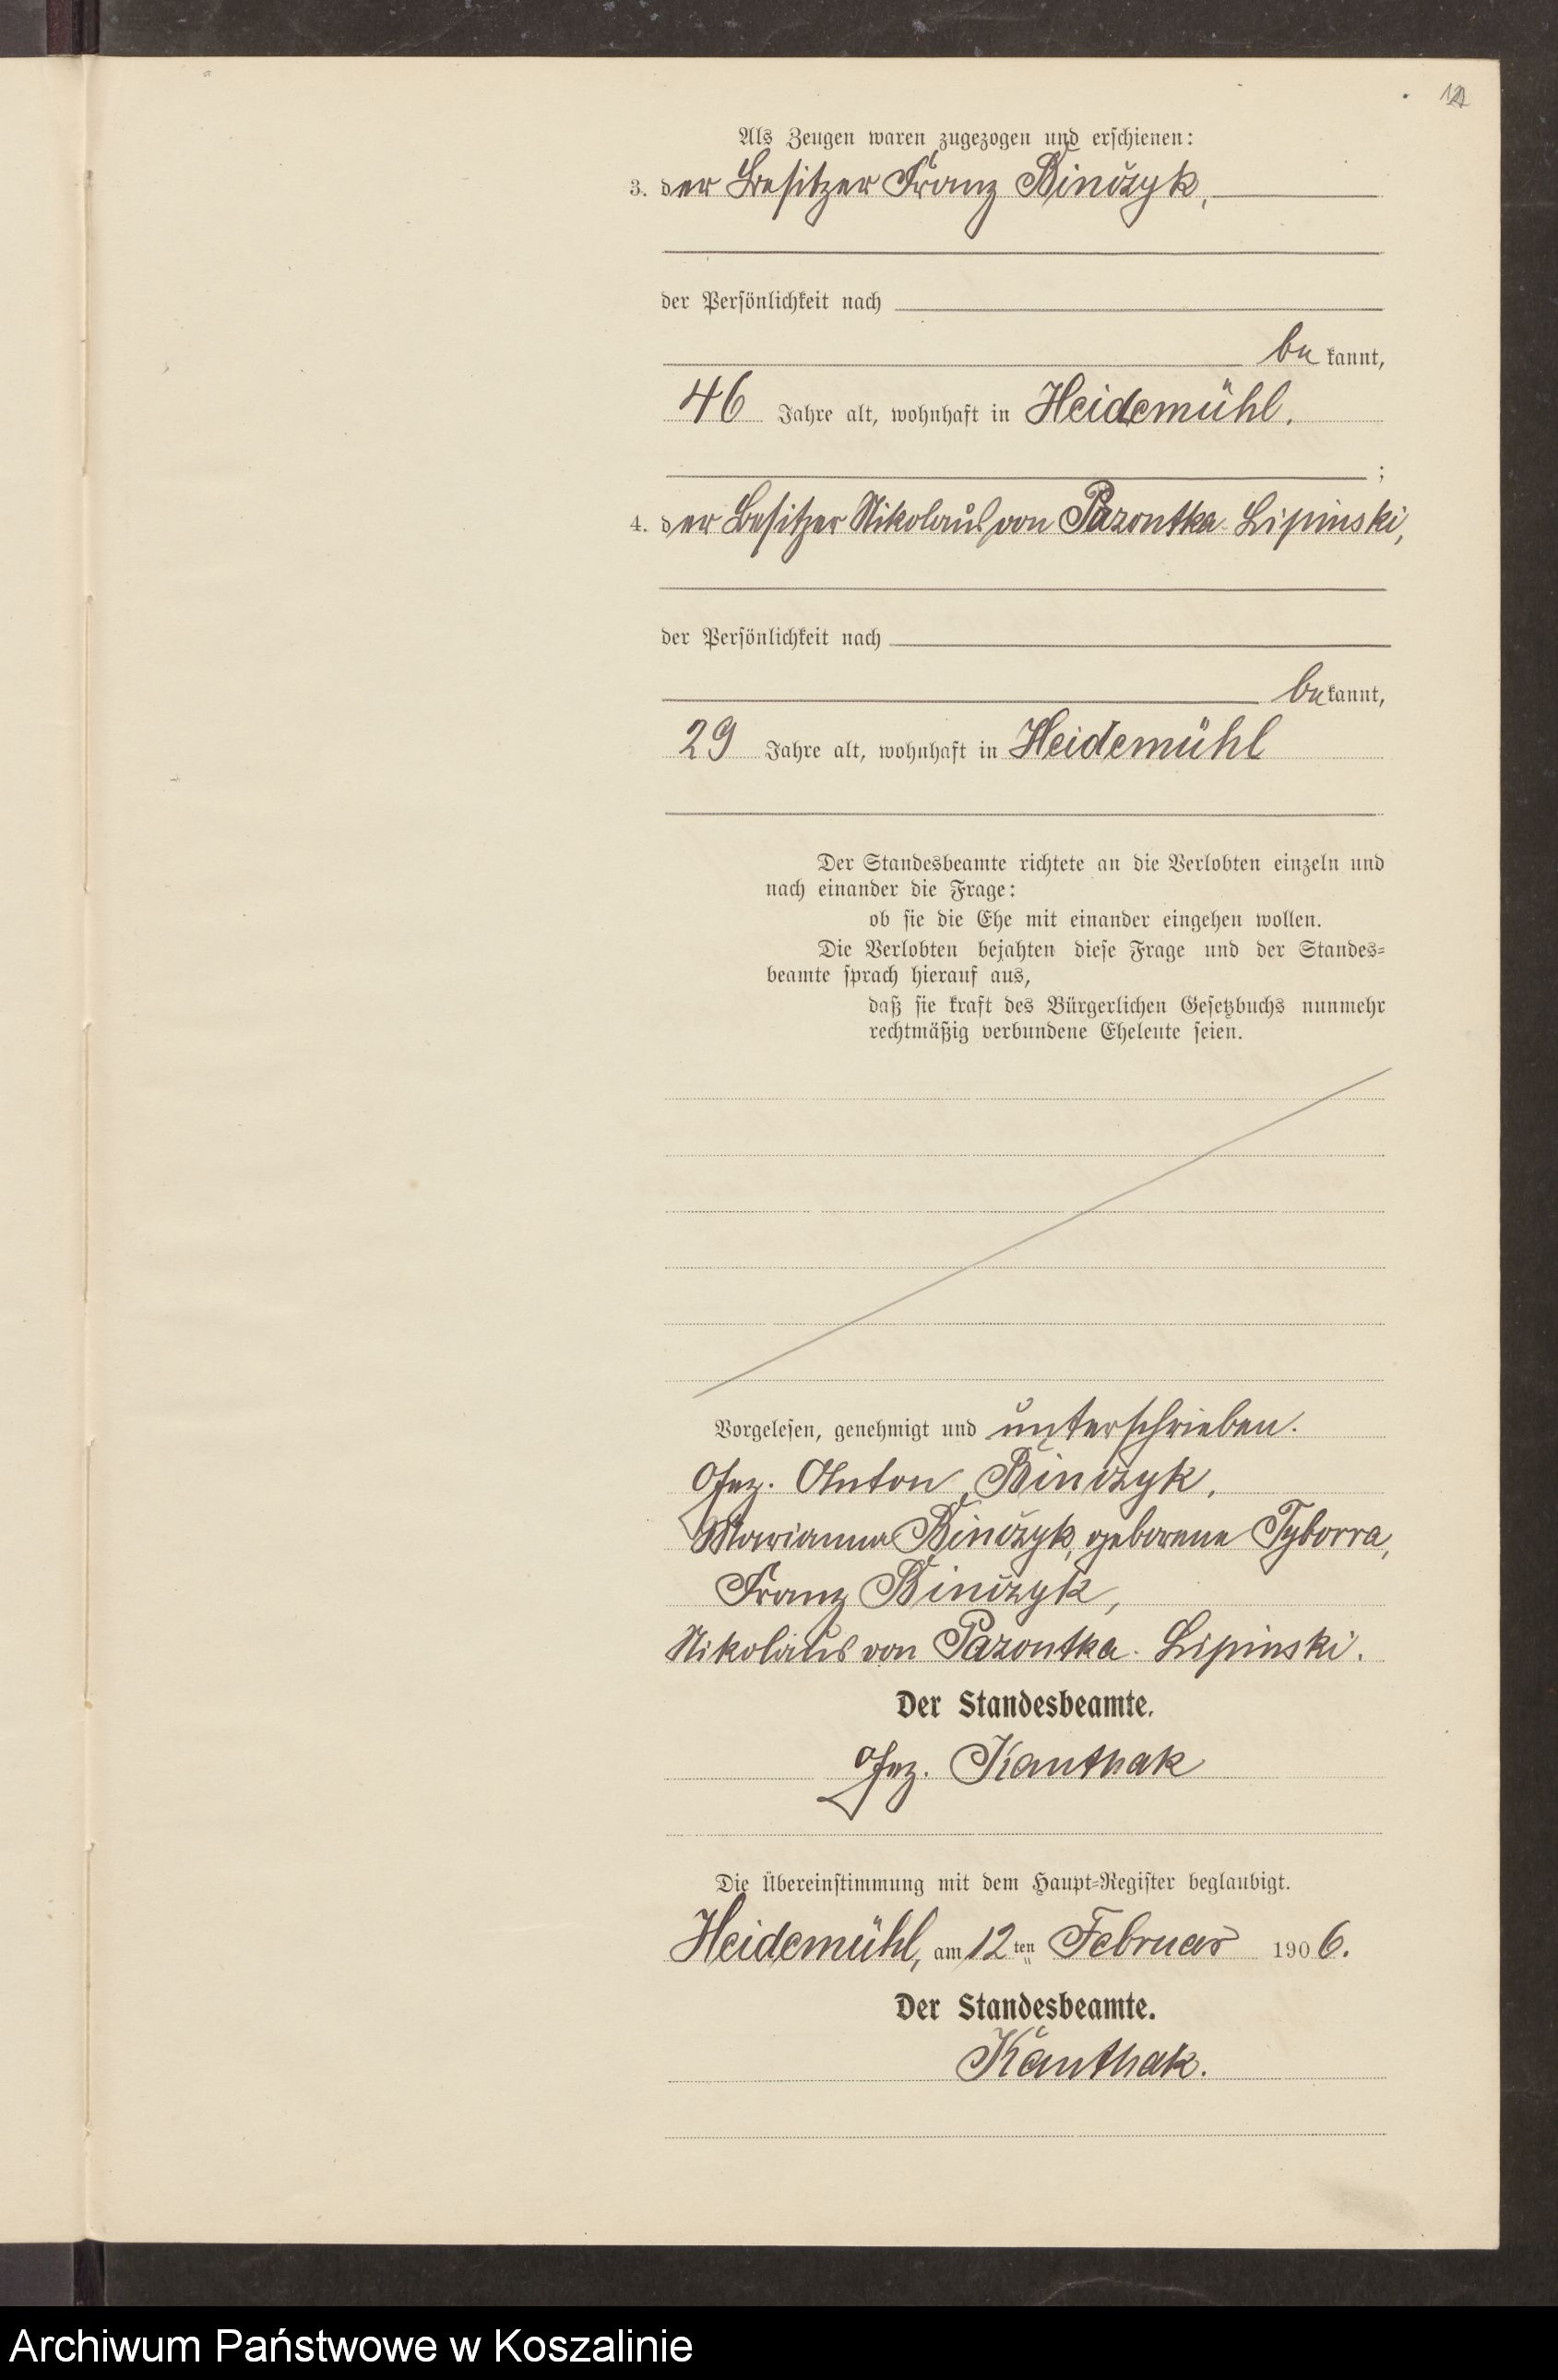 Als Zeugen waren zugezogen und erschienen:
3. der Besitzer Franz Binczyk,
der Persönlichkeit nach
be kannt,
46 Jahre alt, wohnhaft in Heidemühl.
;
4. der Besitzer Nikolaus von Pazontka-Lipinski,
der Persönlichkeit nach
be kannt,
29 Jahre alt, wohnhaft in Heidemühl
Der Standesbeamte richtete an die Verlobten einzeln und
nach einander die Frage:
ob sie die Ehe mit einander eingehen wollen.
Die Verlobten bejahten diese Frage und der Standes-
beamte sprach hierauf aus,
daß sie kraft des Bürgerlichen Gesetzbuchs nunmehr
rechtmäßig verbundene Eheleute seien.
Vorgelesen, genehmigt und unterschrieben.
Gez. Anton Binczyk,
Marianna Binczyk, geborene Tyborra,
Franz Binczyk,
Nikolaus von Pazontka-Lipinski.
Der Standesbeamte.
Gez. Kanthak
Die Übereinstimmung mit dem Haupt-Register beglaubigt.
Heidemühl, am 12ten Februar 1906.
Der Standesbeamte.
Kanthak.
Archiwum Państwowe w Koszalinie